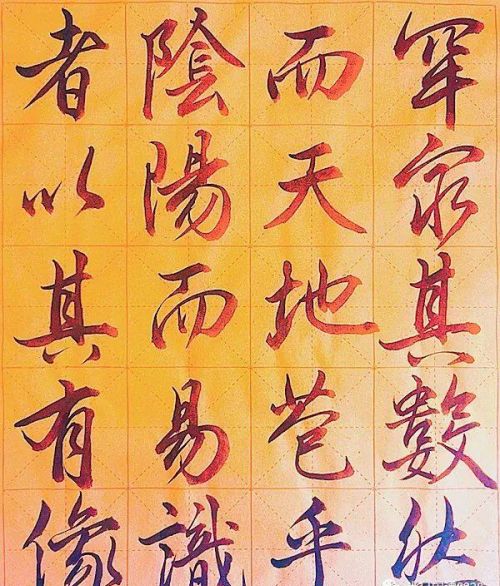 罕窮其數然
而天地苞乎
陰陽而易識
者以其有像